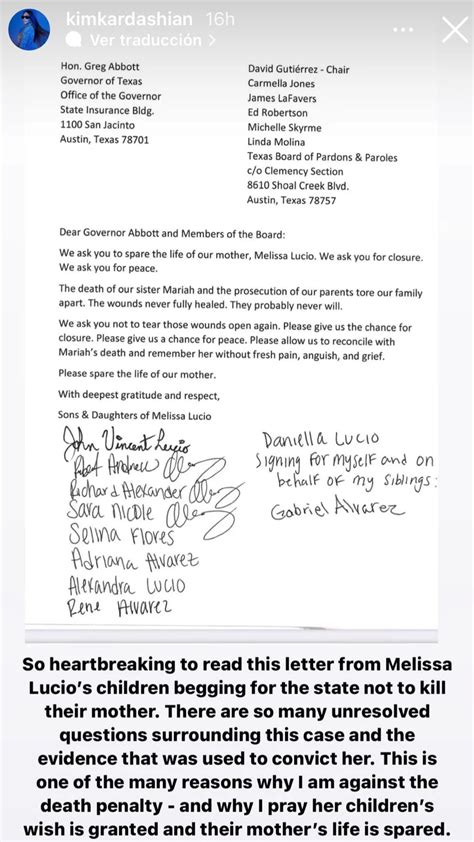 kimkardashian 16h
Ver traducción >
Hon. Greg Abbott
Governor of Texas
Office of the Governor
State Insurance Bldg.
1100 San Jacinto
Austin, Texas 78701
David Gutiérrez - Chair
Carmella Jones
James LaFavers
Ed Robertson
Michelle Skyrme
Linda Molina
Texas Board of Pardons & Paroles
c/o Clemency Section
8610 Shoal Creek Blvd.
Austin, Texas 78757
Dear Governor Abbott and Members of the Board:
We ask you to spare the life of our mother, Melissa Lucio. We ask you for closure.
We ask you for peace.
The death of our sister Mariah and the prosecution of our parents tore our family
apart. The wounds never fully healed. They probably never will.
We ask you not to tear those wounds open again. Please give us the chance for
closure. Please give us a chance for peace. Please allow us to reconcile with
Mariah's death and remember her without fresh pain, anguish, and grief.
Please spare the life of our mother.
With deepest gratitude and respect,
Sons & Daughters of Melissa Lucio
John Vincent Lucio
Robert Andrew
Richard Alexander
Sara Nicole
Selina Flores
Adriana Alvarez
Alexandra Lucio
Rene Alvarez
Daniella Lucio
Signing for myself and on
behalf of my siblings:
Gabriel Alvarez
So heartbreaking to read this letter from Melissa
Lucio's children begging for the state not to kill
their mother. There are so many unresolved
questions surrounding this case and the
evidence that was used to convict her. This is
one of the many reasons why I am against the
death penalty - and why I pray her children's
wish is granted and their mother's life is spared.